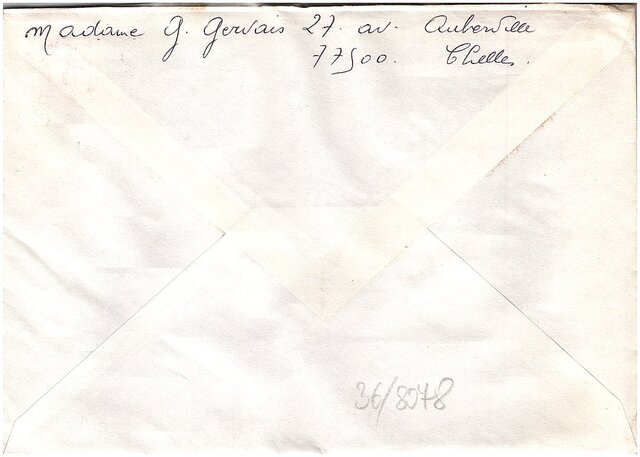 Madame G. Gervais 27. av. Auberville
77500. Chelles.
36/8078